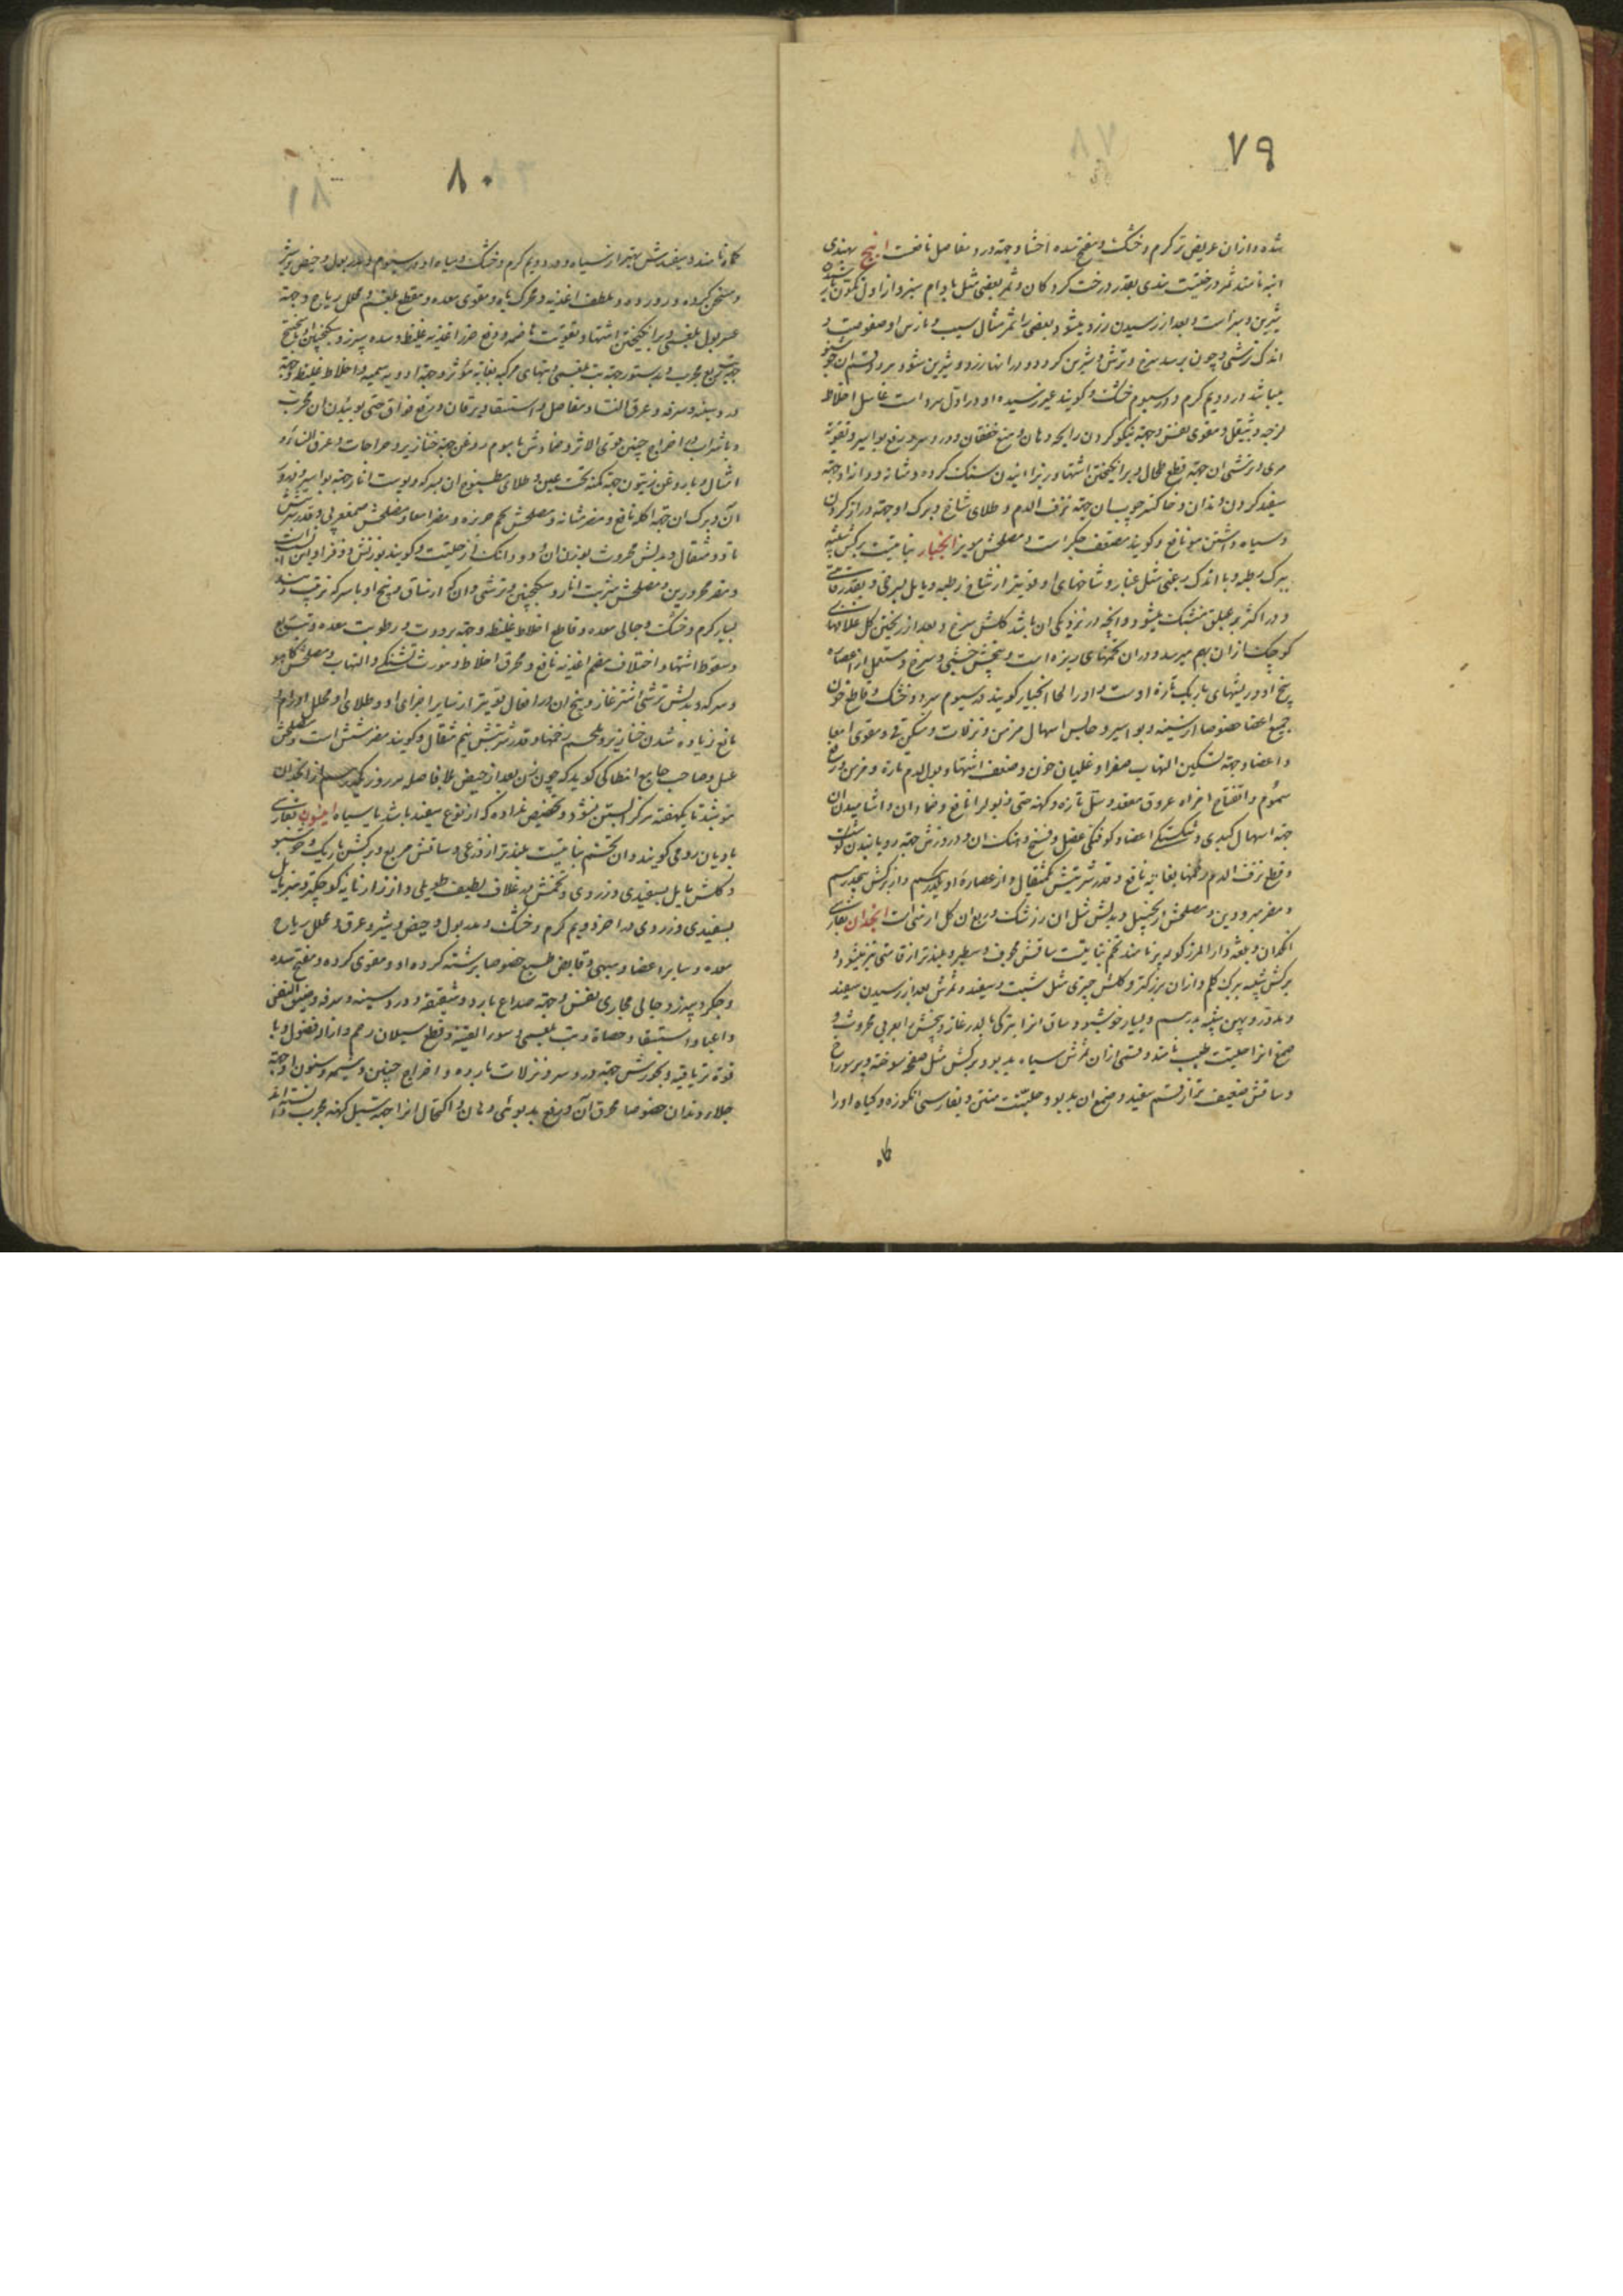 ٧٩
شده و ازان عریض تر کرم و خشک و مفتح سده احشا و جهة درد مفاصل نافعست انبج بهندی
انبه نامند ثمر درختیست هندی بقدر درخت کردکان و ثمر بعضی مثل بادام سبز و از اول تکون تا
شیرین و سبز است و بعد از رسیدن زرد میشود و بعضی را ثمر مثال سیب و نارس او عفوصت و
اندک ترشی و چون برسد سرخ و ترش و شیرین کردد و در انتها زرد و شیرین شود
میباشد در دویم کرم و در سیوم خشک و کویند غیر رسیده او در اول سرد است غاسل اخلاط
لزجه و ثیقل و مقوی نفس و جهة نیکو کردن رایحه دهان و منع خفقان و درد سر و رفع بواسیر و تقویة
مری و ترشی ان جهة قطع طحال و برانکیختن اشتها و ریزانیدن سنک کرده و مثانه و دانه او جهة
سفید کردن دندان و خاکستر چوب ان جهة نزف الدم و طلای شاخ و برک او جهة دراز کردن
و سیاه داشتن مو نافع و کویند مضعف جکر است و مصلحش مویز انجبار نباتیست برکش شبیه
ببرک رطبه و با اندک زغبی مثل غبار و شاخهای او قویتر از شاخ رطبه و مایل بسرخی و بقدر قامتی
و در اکثر بر علیق متشبک میشود و انچه در نزدیکی ان باشد کلش سرخ و بعد از ریختن کل غلافهای
کوچک ازان بهم میرسد و در ان تخمهای ریزه است و بیخش خشبی و سرخ و مستعمل از عصاره
بیخ او و ریشهای باریک تازه اوست و او را لحا انجبار کویند در سیوم سرد و خشک و قاطع خون
جمیع اعضا خصوصا از سینه و بواسیر و حابس اسهال مزمن و نزلات و مسکن قی و مقوی امعا
و اعضا و جهة تسکین التهاب صفرا و غلیان خون و ضعف اشتها و بول الدم تازه و مزمن و رفع
سموم و انفتاح افواه عروق مقعد و سل تازه و کهنه حتی ذبول را نافع و ضماد ان و اشامیدن ان
جهة اسهال کبدی و شکستکی اعضا و کوفتکی عضل و فسخ و هتک ان و ذرورش جهة رویانیدن کوشت
و قطع نزف الدم زخمها بغایه نافع و قدر شربتش یکمثقال و از عصارهٔ او یکدرم و از برکش پنجدرم
و مضر مبرودین و مصلحش زنجبیل و بدلش مثل ان زرشک و ربع ان کل ارمنی است انجدان بفارسی
انکدان و بلغه دار المرز کوله پر نامند تخم نباتیست ساقش مجوف و سطبر و بلندتر از قامتی نیز میشود و
برکش شبیه ببرک کلم و ازان بزرکتر و کلش چتری مثل شبت و سفید و ثمرش بعد از رسیدن سفید
و مدور و پهن شبیه بدرهم و بسیار خوشبو و ساق انرا بترکی بالدرغان و بیخش را بعربی محروث و
صمغ انرا حلتیت طیب نامند و قسمی ازان ثمرش سیاه بدبو و برکش مثل صفحه سوخته و پر سوراخ
و ساقش ضعیف تر از قسم سفید و صمغ ان بدبو و حلتیت منتن و بفارسی انکوزه و کیاه او را
کاه
٨٠
کماه نامند و سفیدش بهتر از سیاه و در دویم کرم و خشک و سیاه او در سیوم و مدر بول و حیض و شیر
و مسخن کرده و روده و ملطف اغذیه و محرک باه و مقوی معده و مقطع بلغم و محلل ریاح و جهة
عسر بول بلغمی و برانکیختن اشتها و تقویت هاضمه و دفع ضرر اغذیه غلیظه و سده سپرز و سکنجبین
و مجرب و بدستور جهة تب بلغمی و تبهای مرکبه بغایة مؤثر و جهة ادویه سمیه و اخلاط غلیظه و جهة
درد سینه و سرفه و عرق النسا و مفاصل و استسقا و یرقان و رفع فواق حتی بوئیدن ان مجرب
و با شراب در اخراج جنین قوی الاثر و ضمادش با موم روغن جهة خنازیر و جراحات و عرق النسا و
امثال و با روغن زیتون جهة کمنه تحت عین و طلای مطبوخ ان بسرکه و پوست انار جهة بواسیر
آن و برک ان جهة اکله نافع و مضر مثانه و مصلحش تخم خربزه و مضر امعا و مصلحش صمغ عربی و قدر شربتش
تا دو مثقال و بدلش محروث بوزن ان و دو دانک از حلتیت
و مضر محرورین و مصلحش شربت انار و سکنجبین و ترشی و ان که از ساق و بیخ او با سرکه ترتیب دهند
بسیار کرم و خشک و جالی معده و قاطع اخلاط غلیظه و جهة برودت و رطوبت معده و تب ربع
و سقوط اشتها و اختلاف هضم اغذیه نافع و محرق اخلاط و مورث تشنکی و التهاب و مصلحش کاهو
و سرکه و بدلش ترشی اشترغاز و بیخ ان در افعال قویتر از سایر اجزای او و طلای او محلل اورام و
مانع زیاده شدن خنازیر و ملحم زخمها و قدر شربتش نیم مثقال و کویند مضر شش است و مصلحش
عسل و صاحب جامع انطاکی کوید که چون زن بعد از حیض بلا فاصله هر روز یکدرهم از انجدان
بنوشد تا یکهفته هرکز ابستن نشود و تخصیص نداده که از نوع سفید باشد یا سیاه انیسون بفارسی
بادیان رومی کویند و ان تخم نباتیست بلندتر از ذرعی و ساقش مربع و برکش باریک و خوشبو
و کلش مایل بسفیدی و زردی و تخمش در غلاف لطیف طویلی و از رازیانه کوچکتر و سبز مایل
بسفیدی و زردی در اخر دویم کرم و خشک و مدر بول و حیض و شیر و عرق و محلل ریاح
معده و سایر اعضا و مبهی و قابض طبیع خصوصا برشته کرده او و مقوی کرده و مفتح سده
و جکر و سپرز و جالی مجاری نفس و جهة صداع بارد و شقیقه و درد سینه و سرفه و ضیق النفس
و اعیا و استسقا و حصاة و تب بلغمی و سوء القنیه و قطع سیلان رحم و ادرار فضول و با
قوة تریاقیه و بخورش جهة درد سر و نزلات بارده و اخراج جنین و مشیمه و سنون او جهة
جلاء دندان خصوصا محرق آن و رفع بدبوئی دهان و اکتحال انرا جهة سبل کهنه مجرب دانسته‌اند